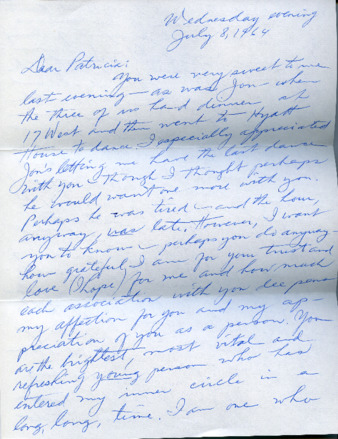 Wednesday evening
July 8, 1964
Dear Patricia:
You were very sweet to me
last evening - as was Jon when
the three of us had dinner at
17 West and then went to Hyatt
House to dance. I especially appreciated
Jon's letting me have the last dance
with you - though I thought perhaps
he would want one more with you.
Perhaps he was tired - and the hour,
anyway, was late. However, I want
you to know - perhaps you do anyway -
how grateful I am for your trust and
love (I hope) for me and how much
each association with you deepens
my affection for you and my ap-
preciation of you as a person. You
are the brightest, most vital and
refreshing young person who has
entered my inner circle in a
long, long, time. I am one who